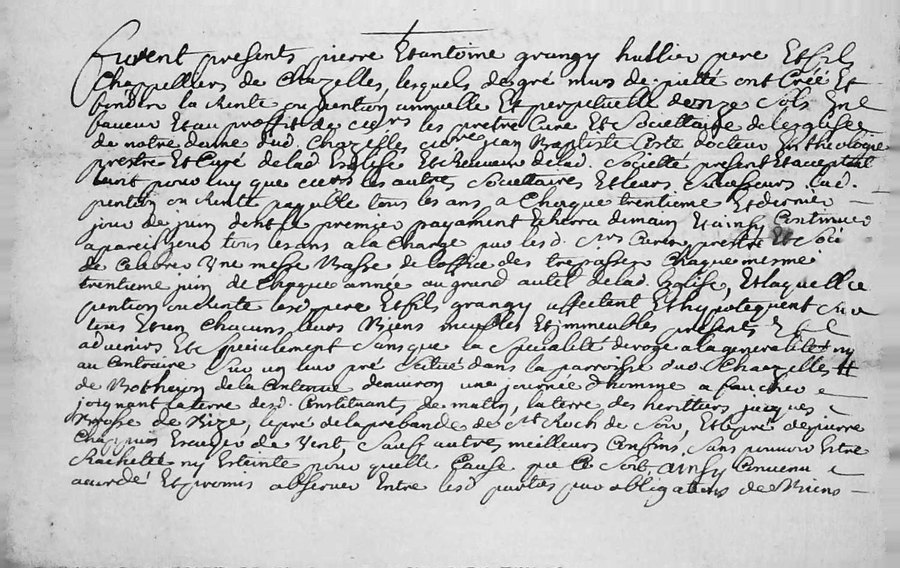 furent presents pierre Et antoine grangy hullier pere Et fils
Chappelliers de Chazelles, lesquels de gré mus de pieté ont Créé Et
fondé la Rente ou pention annuelle Et perpetuelle de onze Sols En
faveur Et au proffit de les pretre Curé Et Societtaire de leglise
de notre dame dud. Chazelles jean Baptiste Coste docteur En theologie
prestre Et Curé de lad Esglise Et de lad. Societté present Et acceptant
tant pour luy que les autres Societtaires Et leurs Successeurs lad.
pention ou Rente payable tous les ans a Chaque trentieme Et dernier
jour de juin dont le premier payament Echerra demain Et ainsy Continuer
a pareil jour tous les ans a la Charge par lesd. Mrs Curé prestre Et Socie
de Celebrer Une messe Basse de loffice des trepassés Chaque mesme
trentieme juin de Chaque année au grand autel de lad. Esglise, Et laquelle
pention ou Rente lesd pere Et fils grangy affectent Et hypotequent Sur
tous Et un Chacuns leurs Biens meubles Et immeubles presents Et
advenirs Et Specialement Sans que la Specialité deroge a la generalité ny
au Contraire Sur un leur pré Scitué dans la parroisse dud Chazelles
de la Contenue denviron une journée dhomme a faucher
joignant la terre desd. Constituants de matin, la terre des herittiers jacques
de Bize, le pré de la prebande de St Roch de Soir, Et le pré de pierre
Chappuis Escuyer de Vent, Sauf autres meilleurs Confins, Sans pouvoir Estre
Rachettée ny Esteinte pour quelle Cause que Ce Soit ainsy Convenu
accordé Et promis observer Entre lesd parties par obligations de Biens